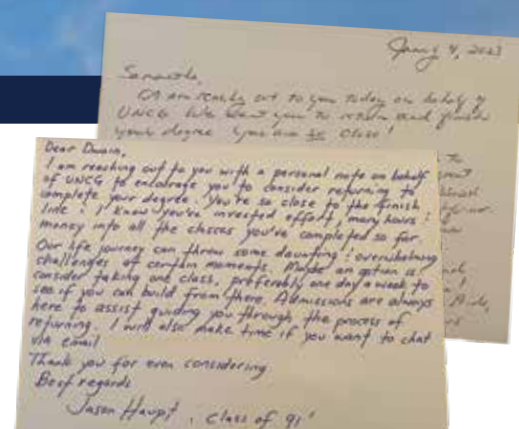 January 4, 2023
Samantha,
I am reaching out to you today on behalf of
UNCG. We want you to return and finish
your degree. You are so close!
Dear Dwain,
I am reaching out to you with a personal note on behalf
of UNCG to encourage you to consider returning to
complete your degree. You're so close to the finish
line! I know you've invested effort, many hours &
money into all the classes you've completed so far.
Our life journey can throw some daunting & overwhelming
challenges at certain moments. Maybe an option is
consider taking one class, preferably one day a week to
see if you can build from there. Admissions are always
here to assist guiding you through the process of
returning. I will also make time if you want to chat
via email
Thank you for even considering
Best regards
Jason Haupt, Class of 91'